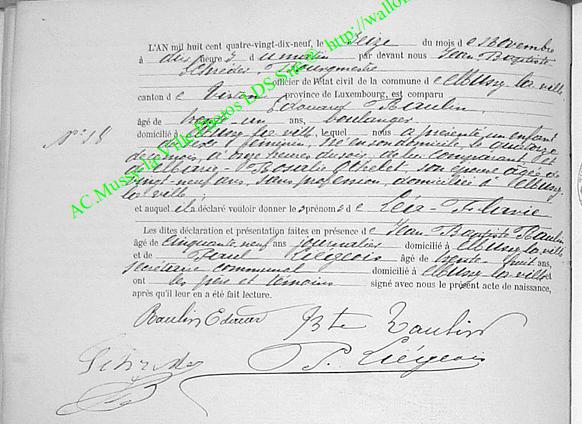 L'AN mil huit cent quatre-vingt-dix-neuf, le seize du mois de Novembre
à dix heures du matin par devant nous Jean Baptiste
Bourgmestre officier de l'état civil de la commune de Mussy la ville
canton de Virton province de Luxembourg, est comparu
Edouard Raulin
âgé de trente un ans, boulanger
domicilié à Mussy la ville, lequel nous a présenté un enfant
du sexe féminin, née en son domicile, le quatorze
de ce mois, à onze heures du soir, de lui comparant et
de Marie Rosalie Othelet son épouse âgée de
vingt neuf ans, sans profession, domiciliée à Mussy
la ville
et auquel il a déclaré vouloir donner les prénoms de Léa
Les dites déclaration et présentation faites en présence de Jean Baptiste Raulin
âgé de cinquante neuf ans journalier domicilié à Mussy la ville
et de Paul Liégeois âgé de trente huit ans,
secrétaire communal domicilié à Mussy la ville et
ont les père et témoins signé avec nous le présent acte de naissance,
après qu'il leur en a été fait lecture.
N° 18
Raulin Edouard
Bte Raulin
P. Liégeois
AC.Mussy-la-Ville Photos LDS Site@ http://wallo